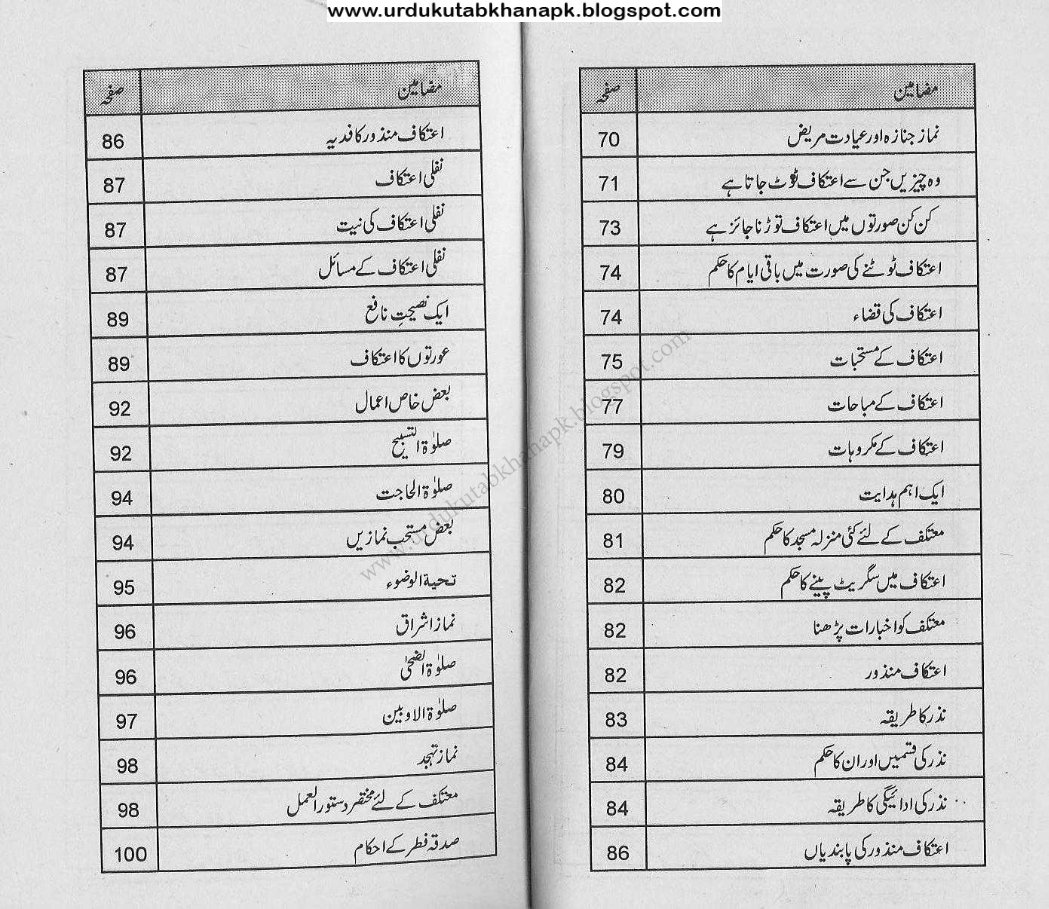 www.urdukutabkhanapk.blogspot.com
مضامین صفحہ
نماز جنازہ اور عیادت مریض 70
وہ چیزیں جن سے اعتکاف ٹوٹ جاتا ہے 71
کن کن صورتوں میں اعتکاف توڑنا جائز ہے 73
اعتکاف ٹوٹنے کی صورت میں باقی ایام کا حکم 74
اعتکاف کی قضاء 74
اعتکاف کے مستحبات 75
اعتکاف کے مباحات 77
اعتکاف کے مکروہات 79
ایک اہم ہدایت 80
معتکف کے لئے کئی منزلہ مسجد کا حکم 81
اعتکاف میں سگریٹ پینے کا حکم 82
معتکف کو اخبارات پڑھنا 82
اعتکاف منذور 82
نذر کا طریقہ 83
نذر کی قسمیں اور ان کا حکم 84
نذر کی ادائیگی کا طریقہ 84
اعتکاف منذور کی پابندیاں 86
مضامین صفحہ
اعتکاف منذور کا فدیہ 86
نفلی اعتکاف 87
نفلی اعتکاف کی نیت 87
نفلی اعتکاف کے مسائل 87
ایک نصیحتِ نافع 89
عورتوں کا اعتکاف 89
بعض خاص اعمال 92
صلوٰۃ التسبیح 92
صلوٰۃ الحاجت 94
بعض مستحب نمازیں 94
تحیۃ الوضوء 95
نماز اشراق 96
صلوٰۃ الضحیٰ 96
صلوٰۃ الاوبین 97
نماز تہجد 98
معتکف کے لئے مختصر دستور العمل 98
صدقہ فطر کے احکام 100
www.urdukutabkhanapk.blogspot.com